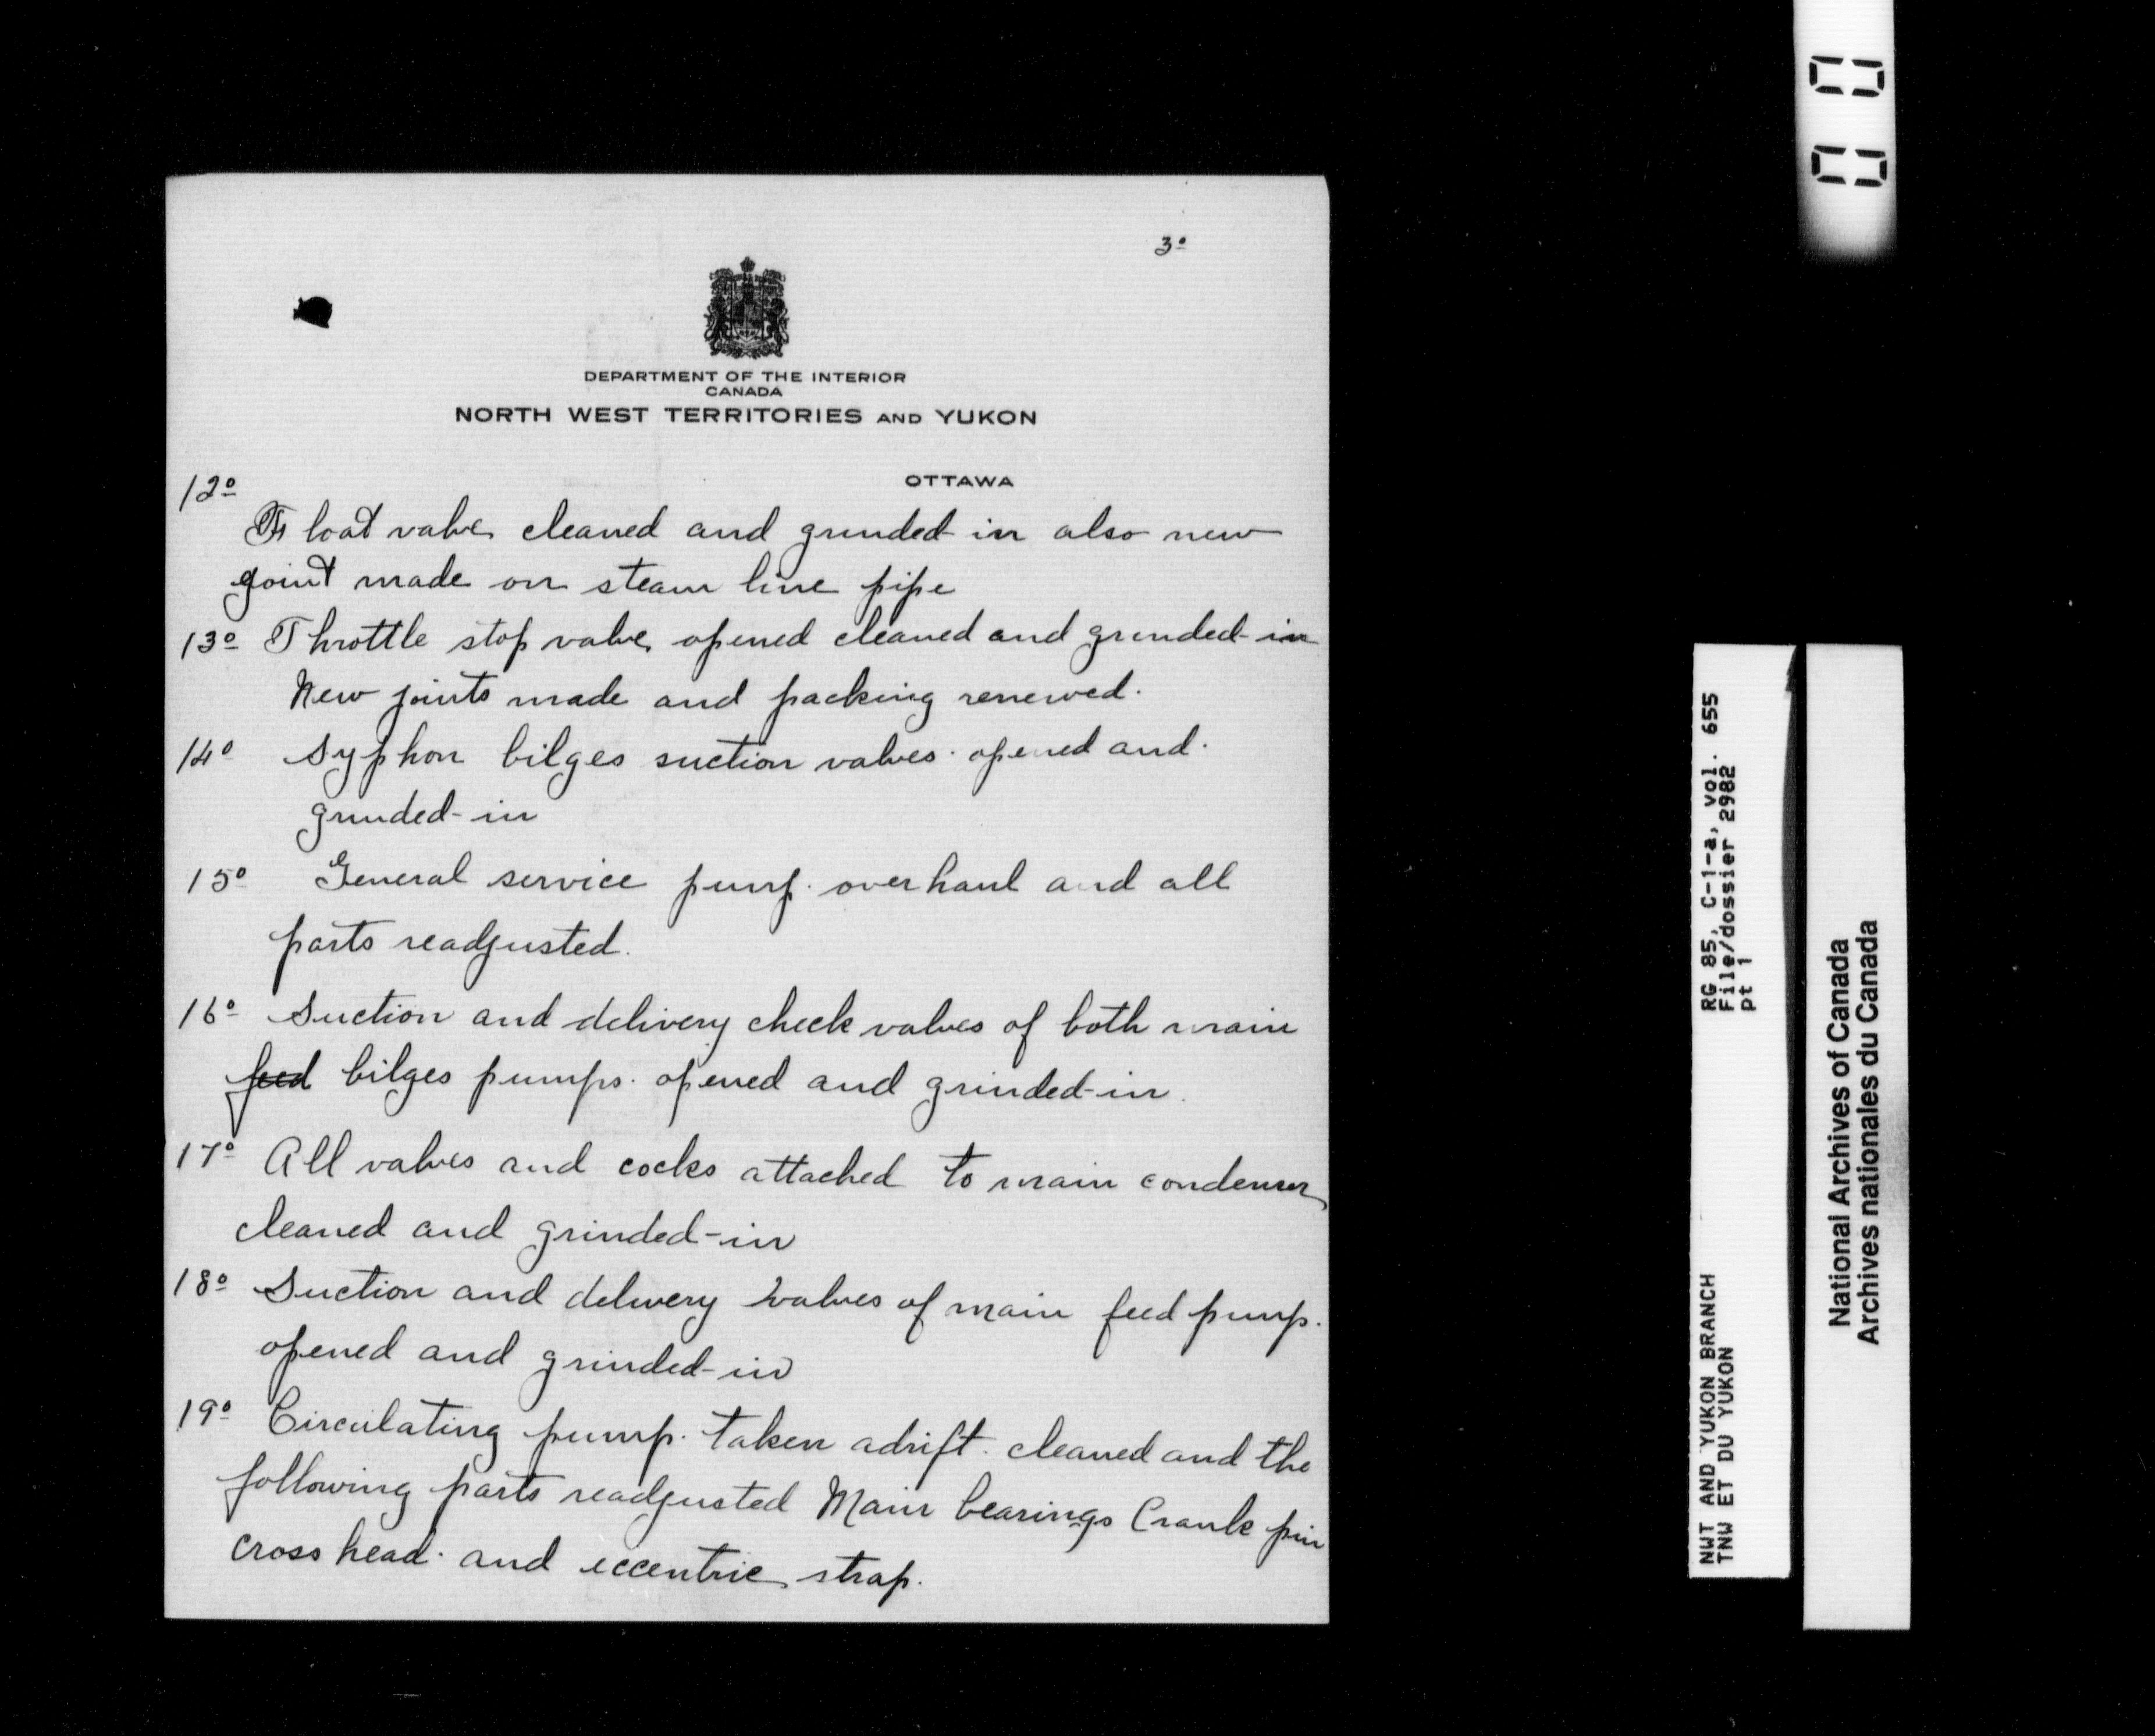 3º
DEPARTMENT OF THE INTERIOR
CANADA
NORTH WEST TERRITORIES AND YUKON
OTTAWA
12º
Float valve cleaned and grinded in also new
joint made on steam line pipe
13º Throttle stop valve opened cleaned and grinded-in
New joints made and packing renewed.
14º Syphon bilges suction valves. opened and.
grinded-in
15º General service pump. overhaul and all
parts readjusted.
16º Suction and delivery check valves of both main
feed bilges pumps. opened and grinded-in.
17º All valves and cocks attached to main condenser
cleaned and grinded-in
18º Suction and delivery valves of main feed pump.
opened and grinded-in
19º Circulating pump. taken adrift. cleaned and the
following parts readjusted Main bearings Crank pin
cross head. and eccentric strap.
RG 85, C-1-a, vol. 655
File/dossier 2982
pt 1
NWT AND YUKON BRANCH
TNW ET DU YUKON
National Archives of Canada
Archives nationales du Canada